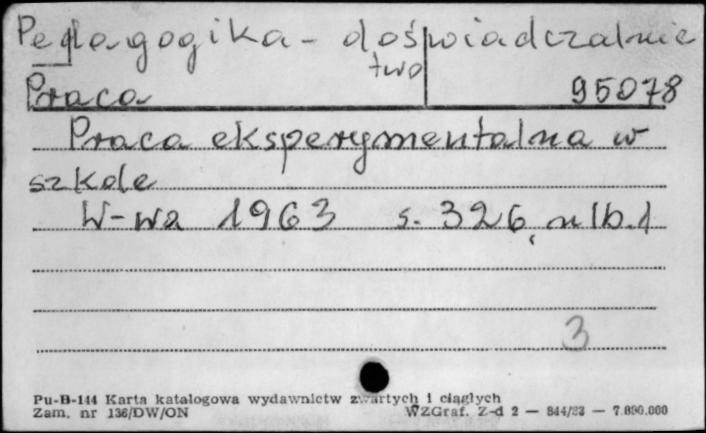 Pedagogika - doświadczalnictwo
Praca 95078
Praca eksperymentalna w
szkole
W-wa 1963 s. 326, nlb. 1
3
Pu-B-144 Karta katalogowa wydawnictw zwartych i ciągłych
Zam. nr 136/DW/ON WZGraf. Z-d 2 — 844/83 — 7.890.000